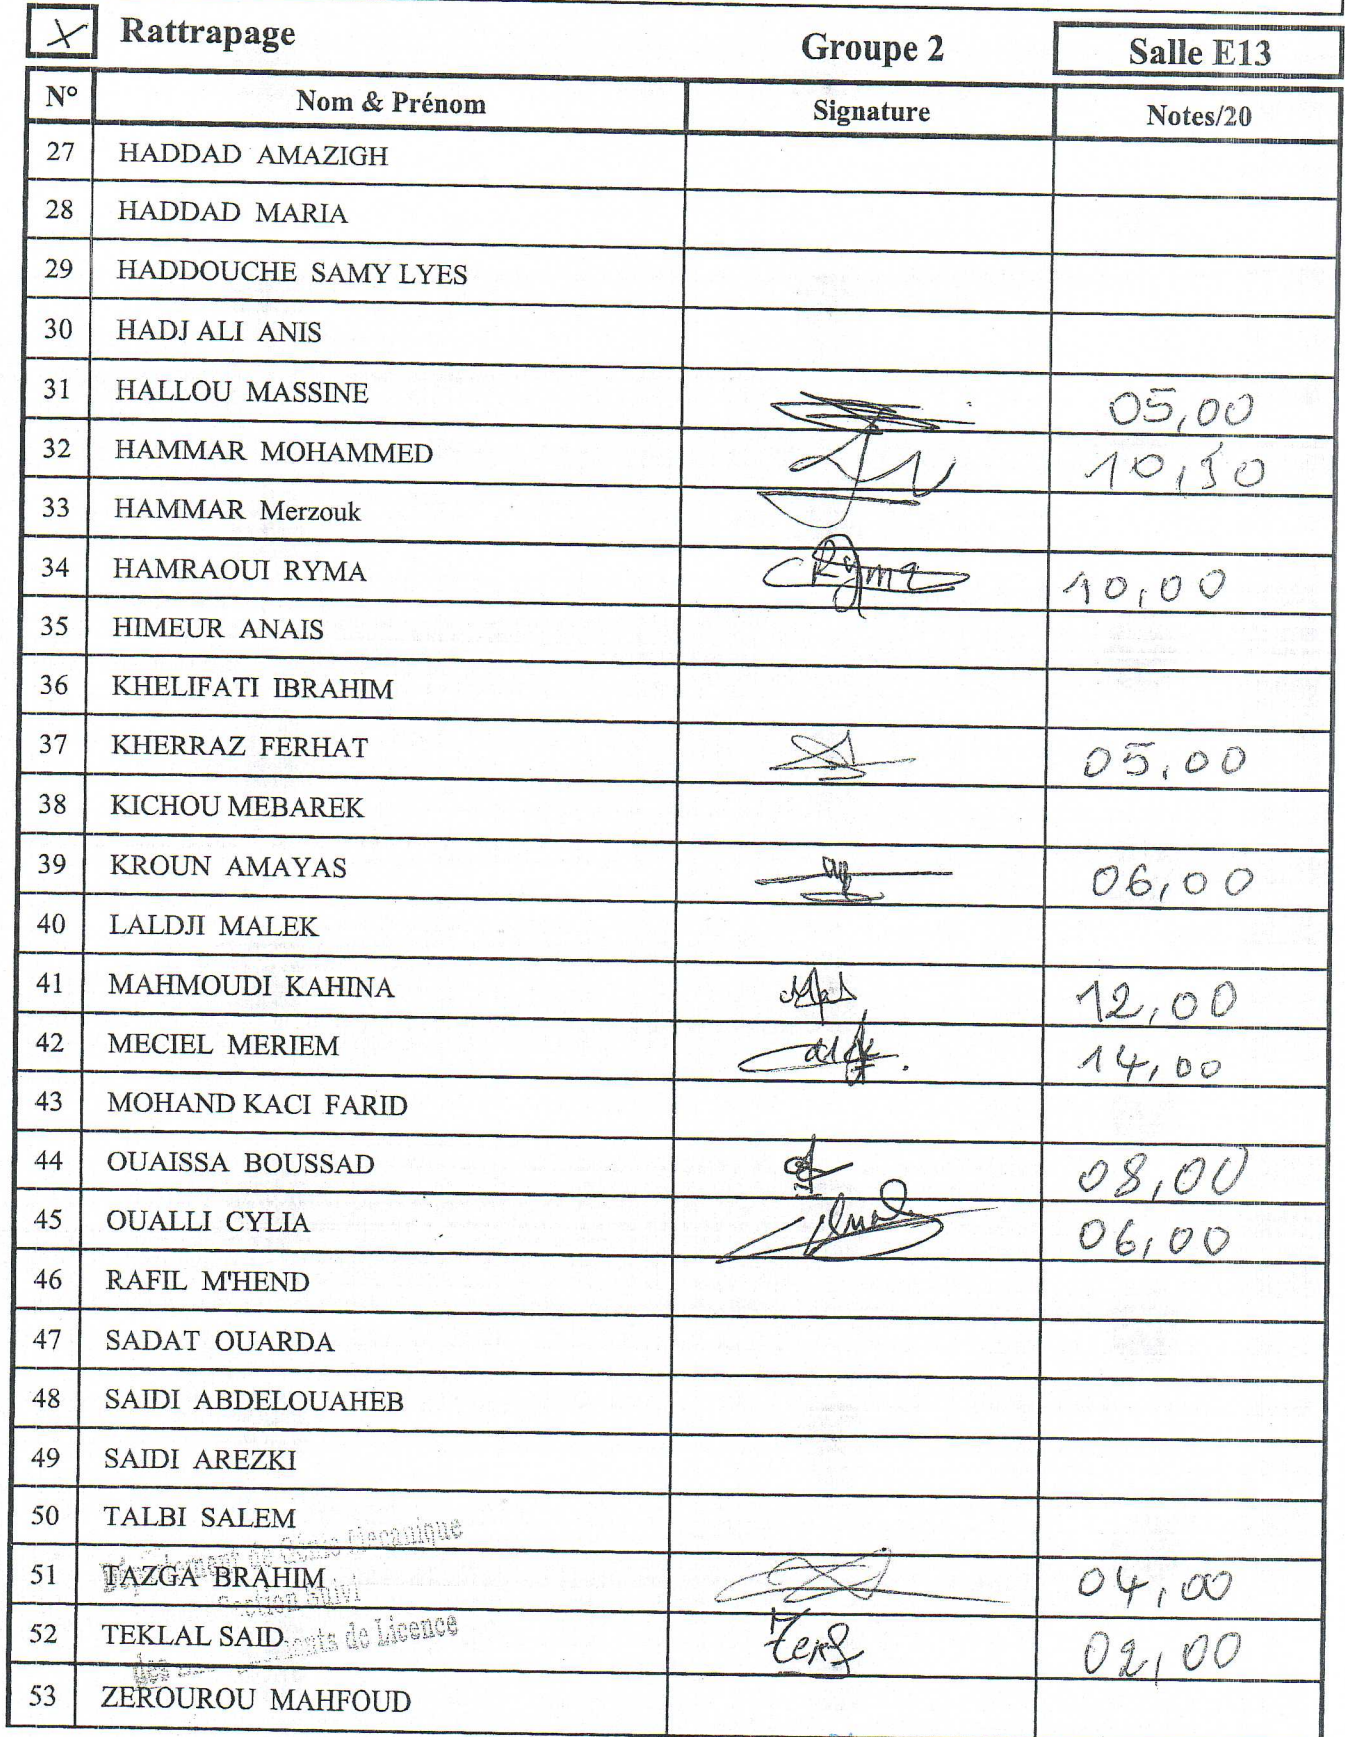 Rattrapage Groupe 2 Salle E13
N° Nom & Prénom Signature Notes/20
27 HADDAD AMAZIGH
28 HADDAD MARIA
29 HADDOUCHE SAMY LYES
30 HADJ ALI ANIS
31 HALLOU MASSINE 05,00
32 HAMMAR MOHAMMED 10,50
33 HAMMAR Merzouk
34 HAMRAOUI RYMA Ryma 10,00
35 HIMEUR ANAIS
36 KHELIFATI IBRAHIM
37 KHERRAZ FERHAT 05,00
38 KICHOU MEBAREK
39 KROUN AMAYAS 06,00
40 LALDJI MALEK
41 MAHMOUDI KAHINA 12,00
42 MECIEL MERIEM 14,00
43 MOHAND KACI FARID
44 OUAISSA BOUSSAD 08,00
45 OUALLI CYLIA 06,00
46 RAFIL M'HEND
47 SADAT OUARDA
48 SAIDI ABDELOUAHEB
49 SAIDI AREZKI
50 TALBI SALEM
Département de Génie Mécanique
51 TAZGA BRAHIM 04,00
Section Suivi
52 TEKLAL SAID 02,00
des de Licence
53 ZEROUROU MAHFOUD